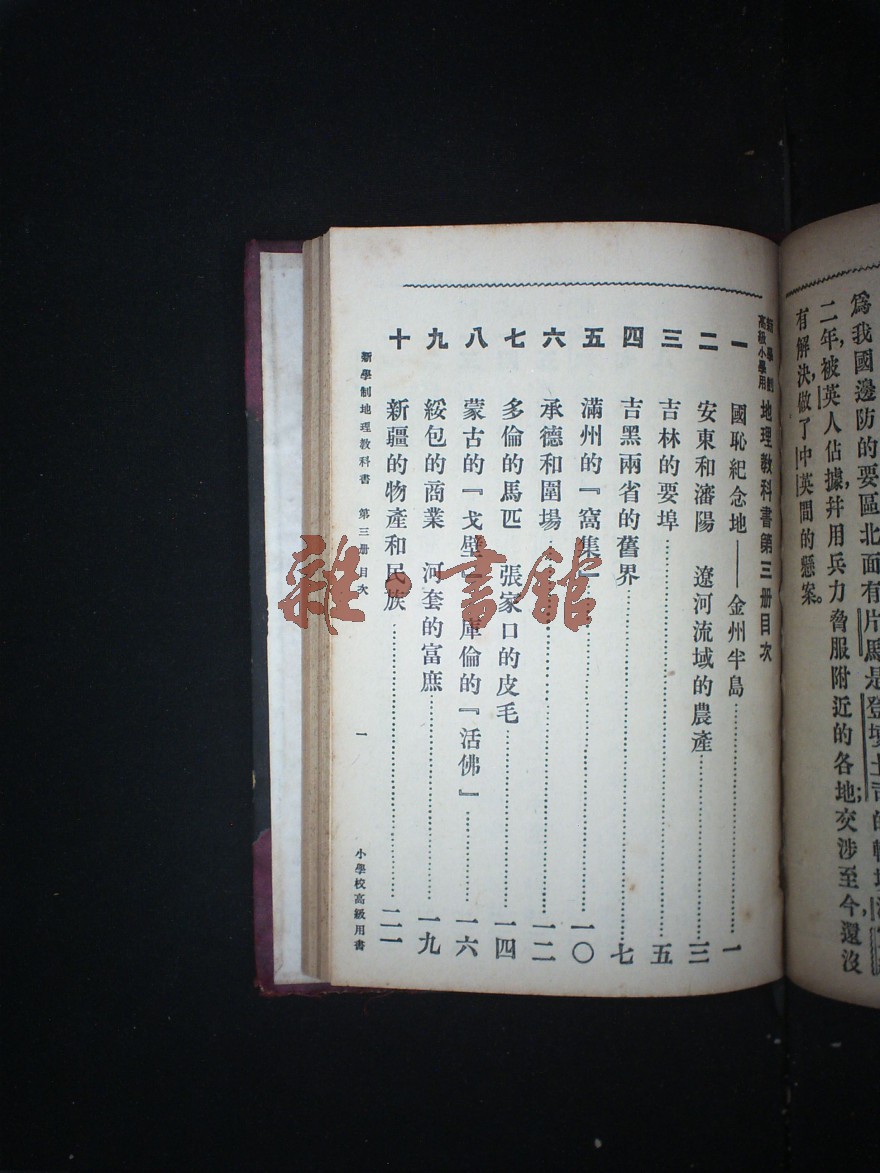 爲我國邊防的要區北面有片馬是登埂土司的
二年，被英人佔據，幷用兵力脅服附近的各地；交涉至今，還沒
有解決，做了中英間的懸案。
新學制高級小學用 地理教科書第三册目次
一 國恥紀念地——金州半島 一
二 安東和瀋陽 遼河流域的農產 三
三 吉林的要埠 五
四 吉黑兩省的舊界 七
五 滿州的『窩集』 一〇
六 承德和圍場 一二
七 多倫的馬匹 張家口的皮毛 一四
八 蒙古的『戈壁』 庫倫的『活佛』 一六
九 綏包的商業 河套的富庶 一九
十 新疆的物產和民族 二一
新學制地理教科書 第三册目次 一 小學校高級用書
雜·書館